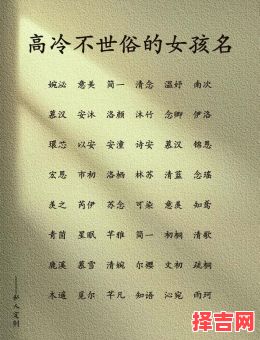 高冷不世俗的女孩名
婉泌 意美 简一 清念 温妤 南次
慕汉 安沐 洛颜 沐竹 念卿 伊洛
以安 安潼 诗安 慕汉 锦恩
宏恩 市初 洛栖 林苏 清蓝 念瑶
美之 芮伊 苏念 可染 意美 知莺
青茵 星眠 芊雅 简一 初桐 清歌
鹿溪 慕雪 清婉 尔缨 文初 疏桐
木遥 觅尔 芊凡 知语 沁宛 雨珂
——私人定制
择吉网